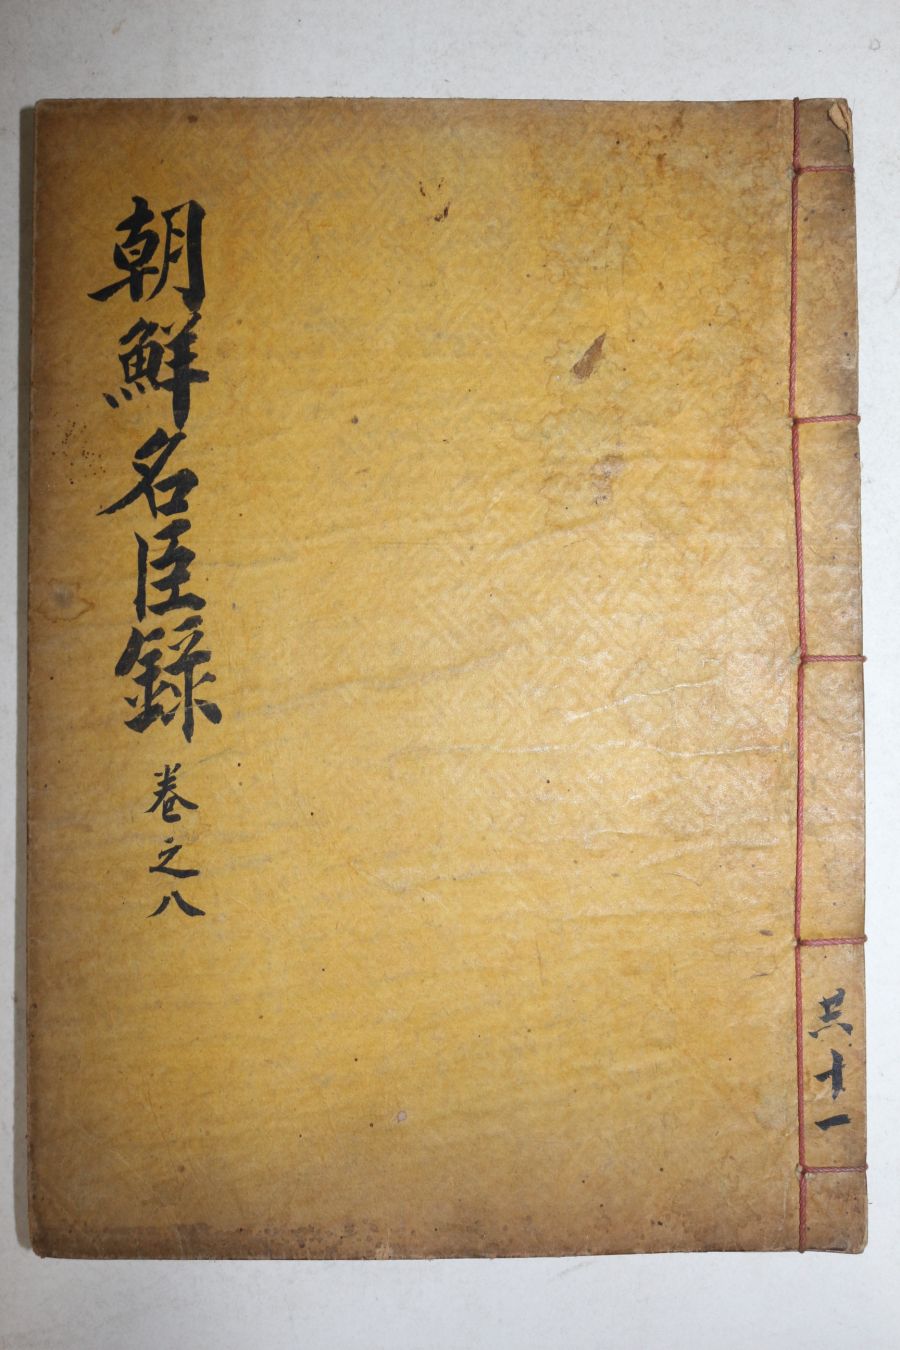 朝鮮名臣錄 卷之八
共十一